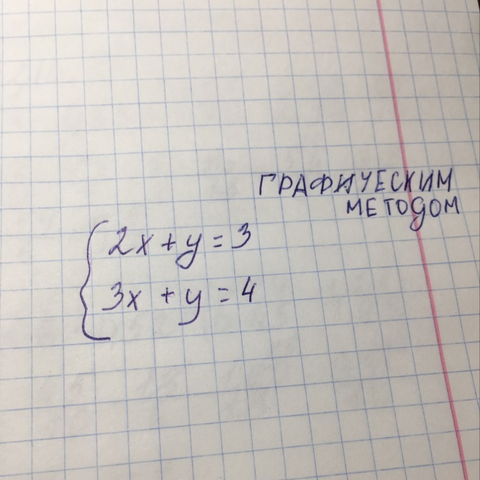 ГРАФИЧЕСКИМ
МЕТОДОМ
2x + y = 3
3x + y = 4